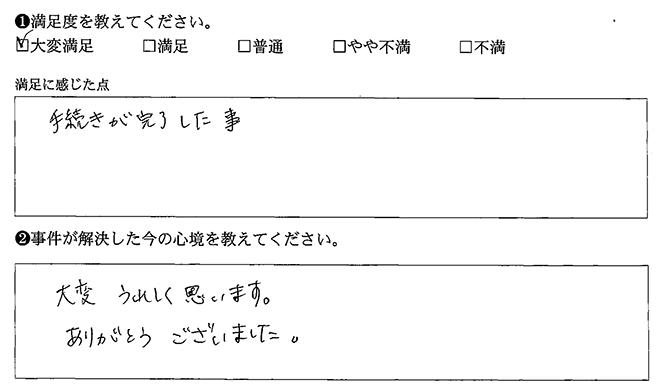 ❶満足度を教えてください。
☑大変満足 □満足 □普通 □やや不満 □不満
満足に感じた点
手続きが完了した事
❷事件が解決した今の心境を教えてください。
大変 うれしく思います。
ありがとう ございました。